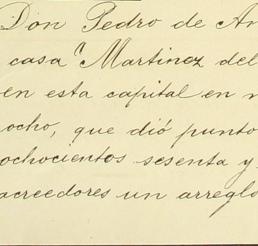 Don Pedro de An
casa "Martinez del
en esta capital en n
ocho, que dió punto
ochocientos sesenta y
acreedores un arreglo